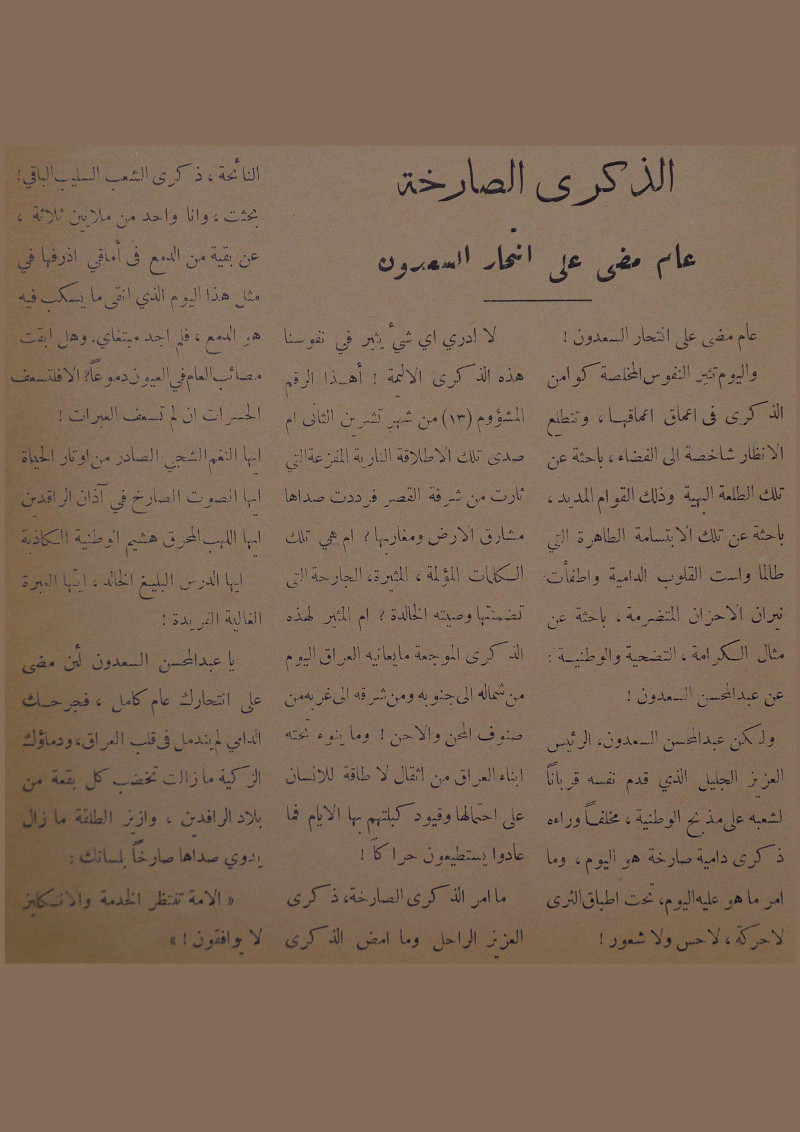 الذكرى الصارخة
عام مضى على انتحار السعدون
عام مضى على انتحار السعدون !
واليوم تثير النفوس المخلصة كوامن
الذكرى فى اعماق اعماقها ، وتتطلع
الانظار شاخصة الى الفضاء ، باحثة عن
تلك الطلعة البهية وذلك القوام المديد ،
باحثة عن تلك الابتسامة الطاهرة التي
طالما واست القلوب الدامية واطفأت
نيران الاحزان المتضرمة ، باحثة عن
مثال الكرامة ، التضحية والوطنية :
عن عبدالمحسن السعدون !
ولكن عبدالمحسن السعدون، الرئيس
العزيز الجليل الذي قدم نفسه قرباناً
لشعبه على مذبح الوطنية ، مخلفاً وراءه
ذكرى دامية صارخة هو اليوم ، وما
امر ما هو عليه اليوم، تحت اطباق الثرى
لاحركة ، لاحس ولا شعور !
لا ادري اي شيٴ يثير في نفوسنا
هذه الذكرى الاليمة ! أهذا الرقم
المشؤوم (١٣) من شهر تشرين الثانى ام
صدى تلك الاطلاقة النارية المفزعة التي
ثارت من شرفة القصر فرددت صداها
مشارق الارض ومغاربها ؟ ام هي تلك
الكلمات المؤلمة ، المثيرة، الجارحة التى
تضمنتها وصيته الخالدة ؟ ام المثير لهذه
الذكرى الموجعة مايعانيه العراق اليوم
من شماله الى جنوبه ومن شرقه الى غربه من
صنوف المحن والاحن ! وما ينوء تحته
ابناء العراق من اثقال لا طاقة للانسان
على احتمالها وقيود كبلتهم بها الايام فما
عادوا يستطيعون حراكاً !
ما امر الذكرى الصارخة، ذكرى
العزيز الراحل وما امض الذكرى
النائحة ، ذكرى الشعب السليب الباقي!
بحثت ، وانا واحد من ملايين ثلاثة ،
عن بقية من الدمع فى أماقي اذرفها في
مثل هذا اليوم الذي انقى ما يسكب فيه
هو الدمع ، فلم اجد مبتغاي. وهل ابقت
مصائب العام في العيون دموعاً؟ الا فلتسعف
الحسرات ان لم تسعف العبرات !
ايها النغم الشجي الصادر من اوتار الحياة
ايها الصوت الصارخ في آذان الرافدين
ايها اللهب المحرق هشيم الوطنية الكاذبة
ايها الدرس البليغ الخالد ، ايتها العبرة
الغالية الفريدة !
يا عبدالمحسن السعدون لئن مضى
على انتحارك عام كامل ، فجرحك
الدامي لم يندمل فى قلب العراق، ودماؤك
الزكية ما زالت تخضب كل بقعة من
بلاد الرافدين ، وازيز الطلقة ما زال
يدوي صداها صارخاً بلسانك :
« الامة تنتظر الخدمة والانكليز
لا يوافقون ! »